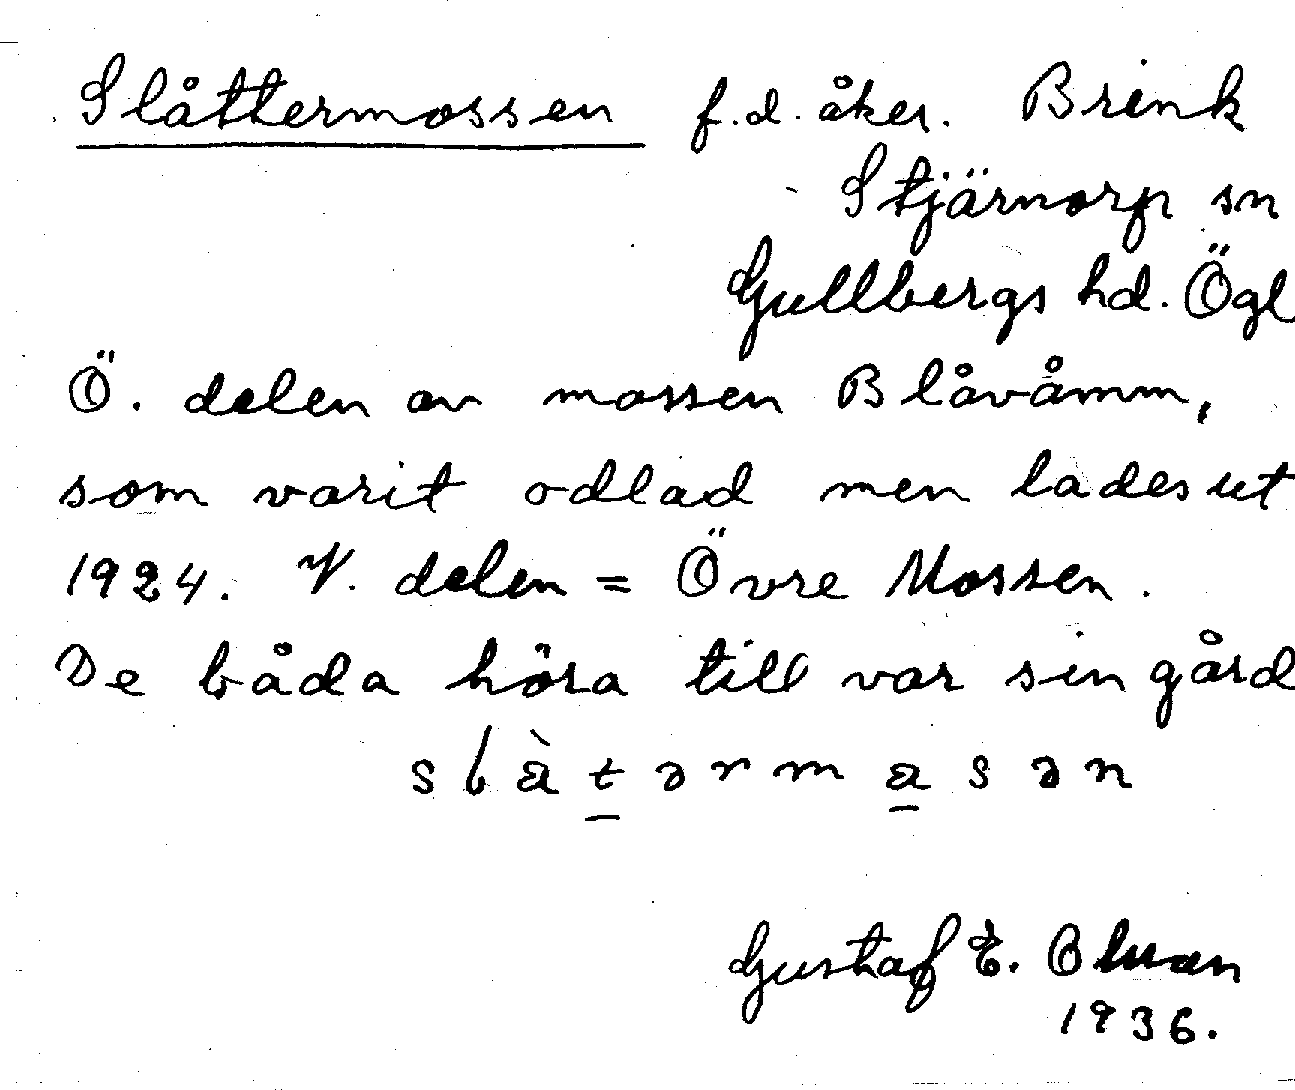 Slåttermossen f.d. åker. Brink
Stjärnorp sn
Gullbergs hd. Ögl
Ö. delen av mossen Blåvåmm,
som varit odlad men lades ut
1924. V. delen = Övre Mossen.
De båda höra till var sin gård
slàtərmasən
Gustaf E.
1936.